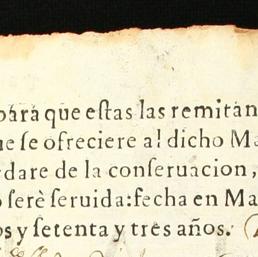 para que estas las remitan
ue se ofreciere al dicho Ma
rdare de la conseruacion,
o serè seruida: fecha en Ma
os y setenta y tres años.